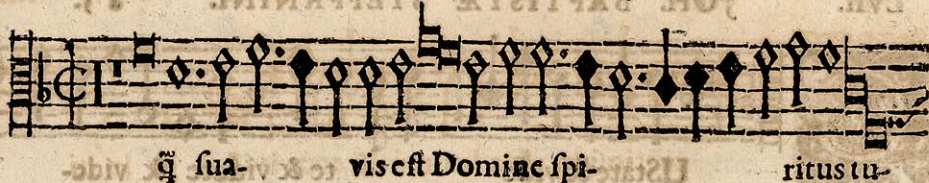 q̃ ſua- vis eſt Domine ſpi- ritus tu-